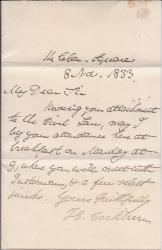 Square
8 Nov. 1833.
My Dear Sir
Knowing your attachment
to the Civil Law, may I
beg your attendance here at
breakfast on Monday at
9, when you will meet with
& a few select
Yours faithfully
H. Cockburn